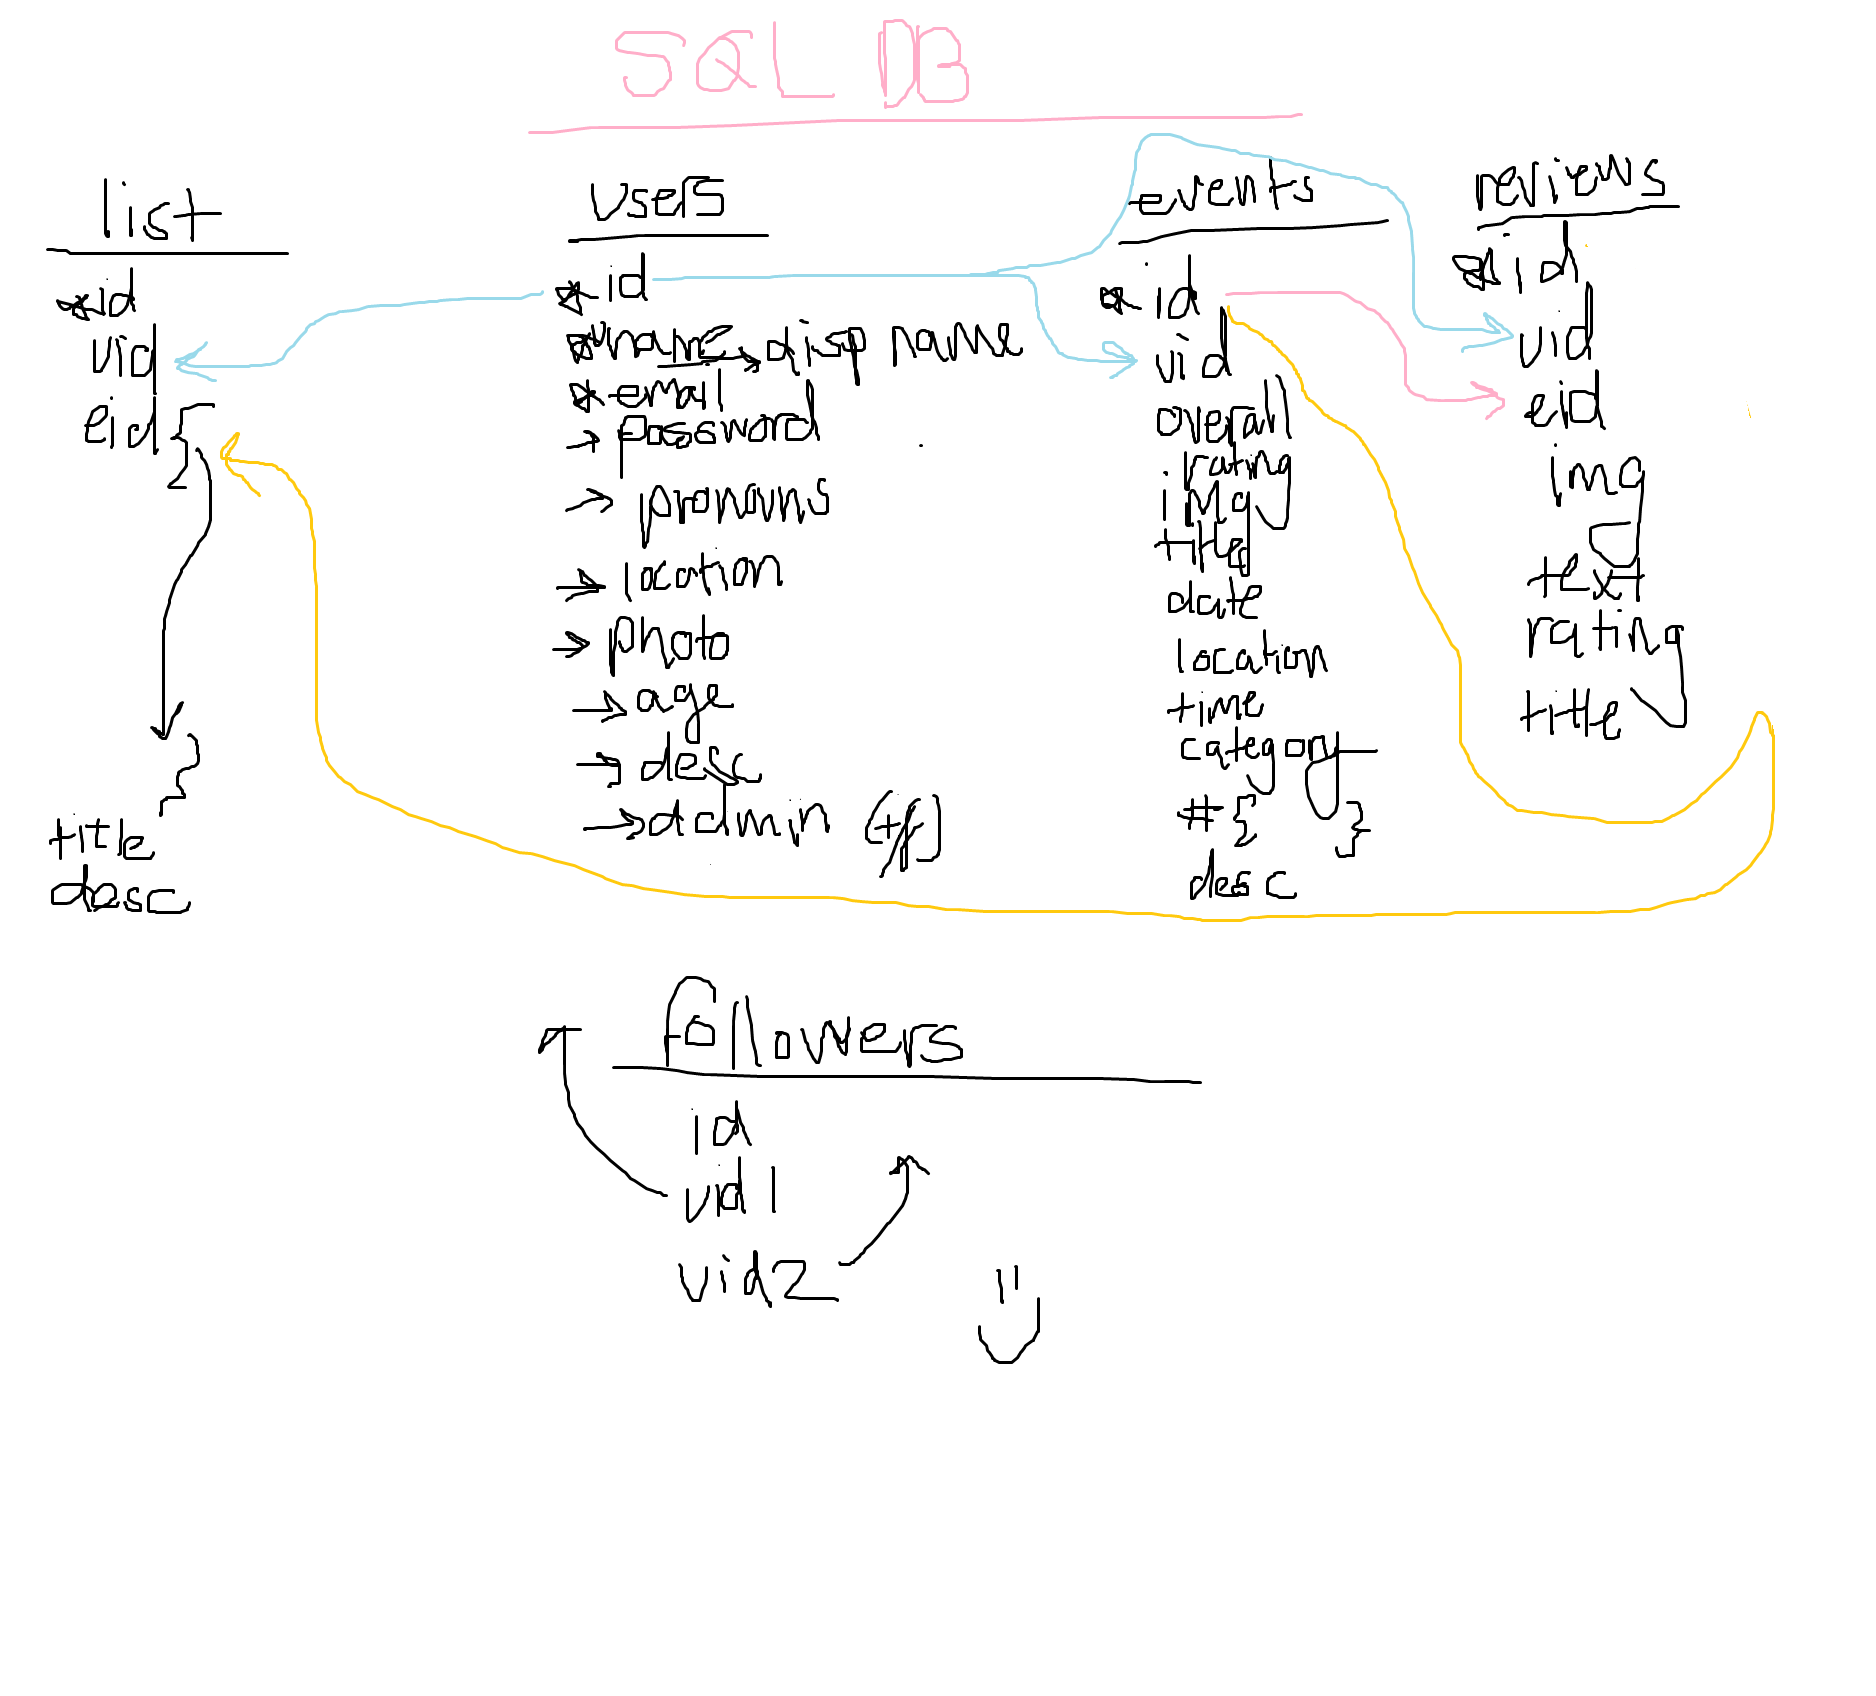 SQL DB
list
*id
uid
eid {
}
title
desc
users
*id
*uname → disp name
*email
→ password
→ pronouns
→ location
→ photo
→ age
→ desc
→ admin (t/f)
events
*id
uid
overall
rating
img
title
date
location
time
category
# { }
desc
reviews
*id
uid
eid
img
text
rating
title
followers
id
uid1
uid2